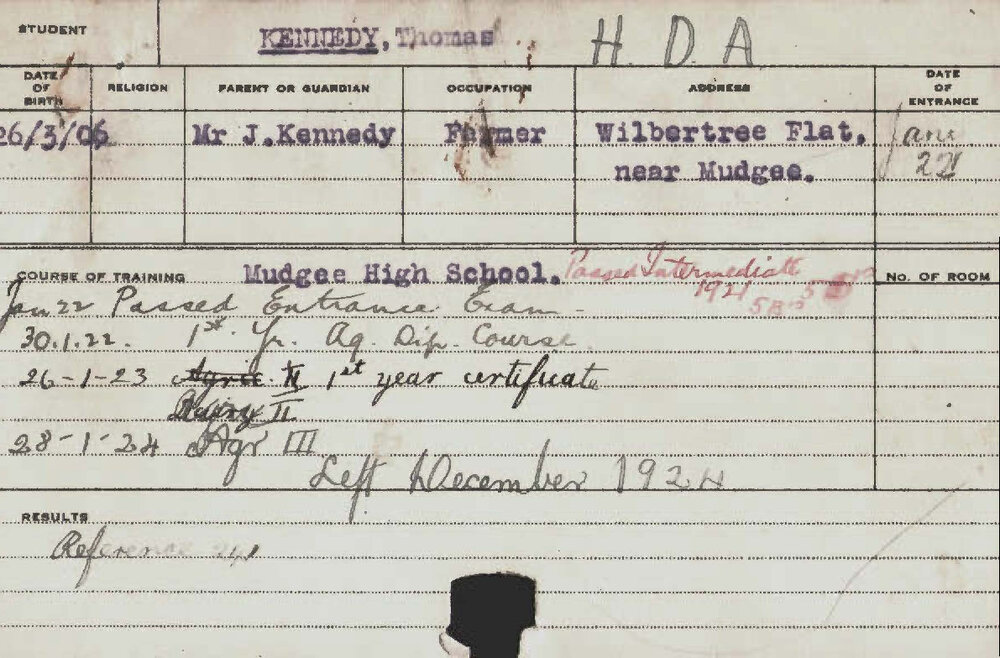 STUDENT
KENNEDY, Thomas
H. D. A
DATE OF BIRTH
RELIGION
PARENT OR GUARDIAN
OCCUPATION
ADDRESS
DATE OF ENTRANCE
26/3/06
Mr J.Kennedy
Farmer
Wilbertree Flat,
near Mudgee.
Jan.
22
COURSE OF TRAINING
Mudgee High School.
Passed Intermediate
1921
5B's
No. OF ROOM
Jan 22 Passed Entrance Exam -
30.1.22. 1st. Yr. Ag. Dip. Course.
26-1-23 Agric. II 1st year certificate
Dairy II
28-1-24 Agr III
Left December 1924
RESULTS
Reference